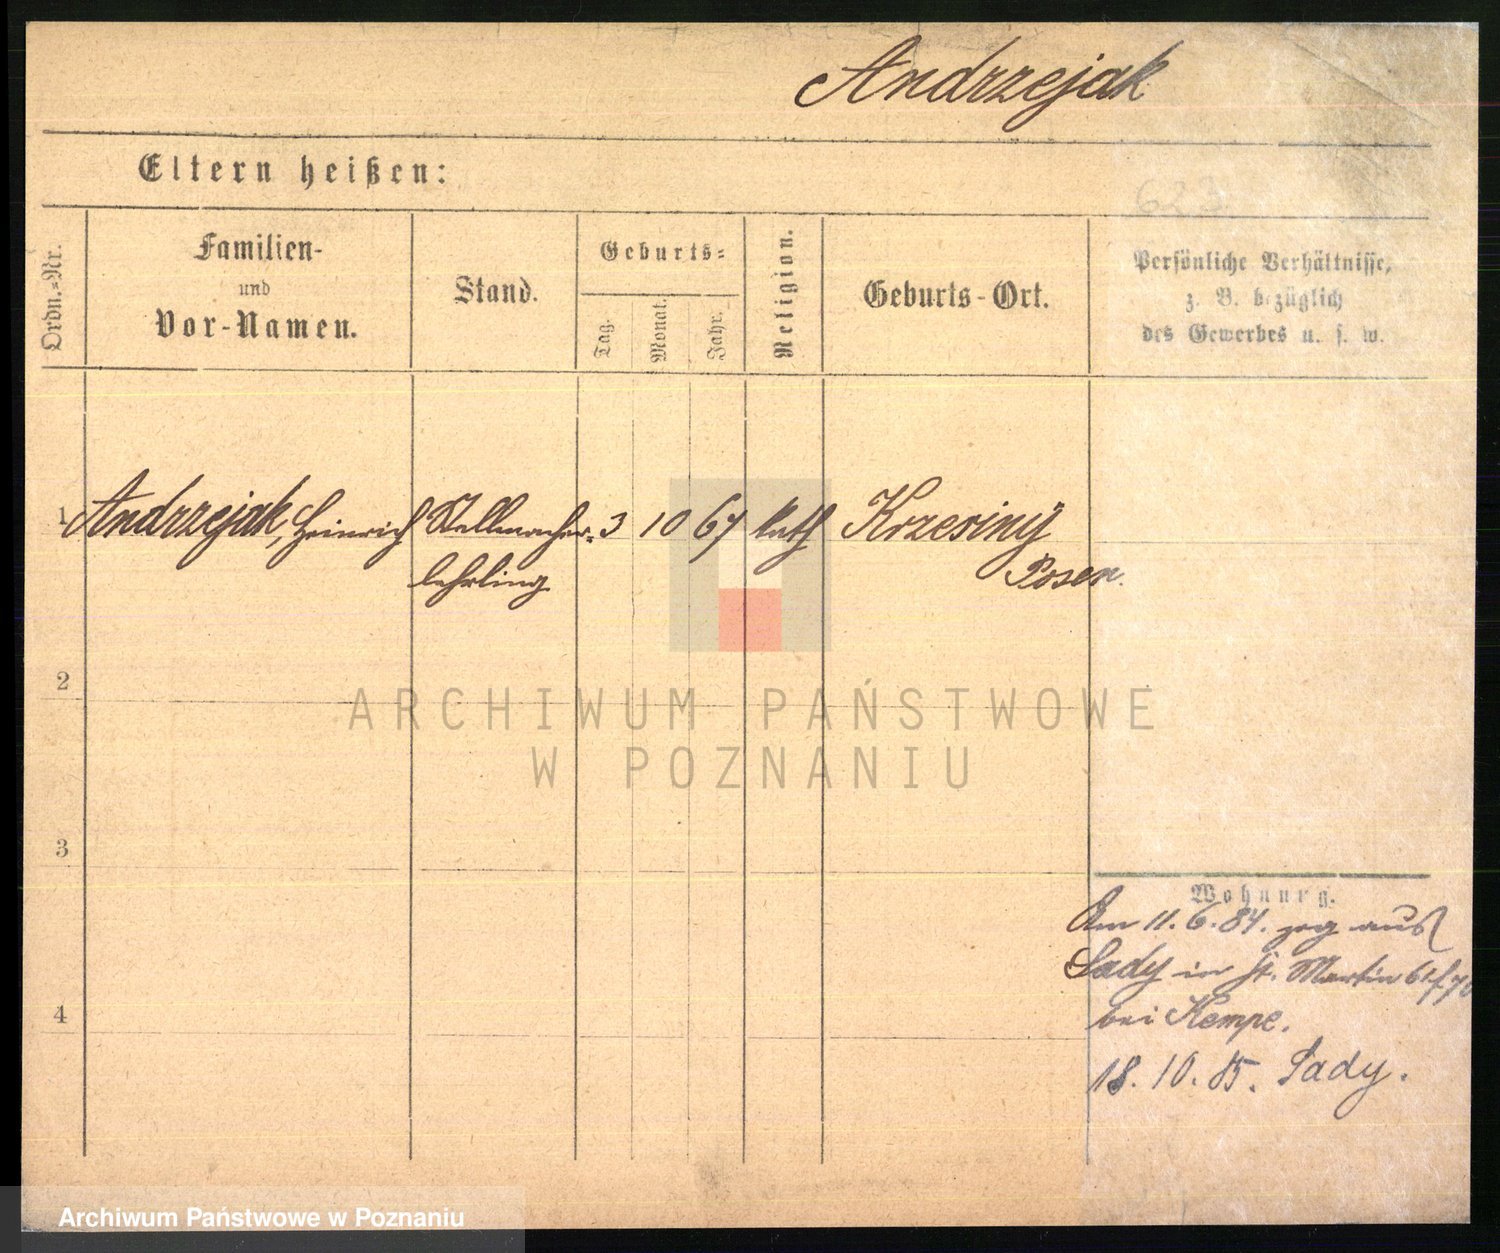 Andrzejak
Eltern heißen:
623
Ordn.-Nr.
Familien-
und
Vor-Namen.
Stand.
Geburts-
Tag.
Monat.
Jahr.
Religion.
Geburts-Ort.
Persönliche Verhältnisse,
z. B. bezüglich
des Gewerbes u. s. w.
1 Andrzejak, Heinrich Stellmacher- 3 10 67 kath Krzesiny
lehrling Posen.
2
ARCHIWUM PAŃSTWOWE
W POZNANIU
3
Wohnung.
Am 11.6.84. zog aus
Sady in St. Martin
4
bei Kempe.
18. 10. 85. Sady.
Archiwum Państwowe w Poznaniu